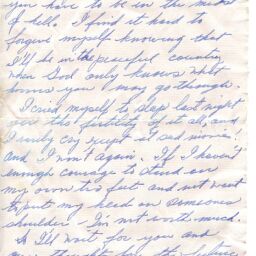 you have to be in the midst
of hell. I find it hard to
forgive myself knowing that
I'll be in the peaceful country
when God only knows what
you may go through.
I cried myself to sleep last night
over the futility of it all, and
I rarely cry except at sad movies!
and I won't again. If I haven't
enough courage to stand on
my own two feet and not want
to put my head on someones
shoulder - I'm not worth much.
So I'll wait for you and
the future